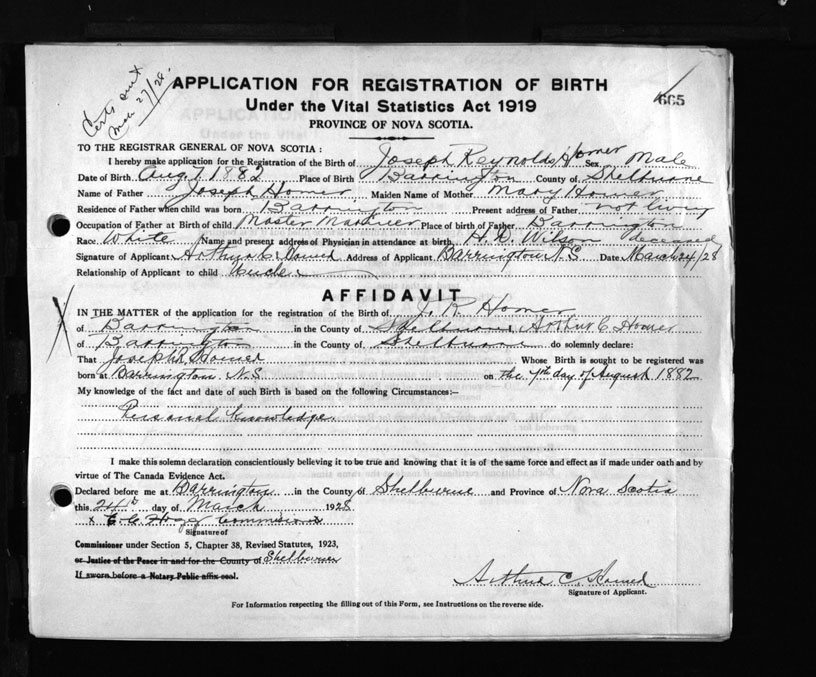 Certs sent
Mar 27/28.
APPLICATION FOR REGISTRATION OF BIRTH
665
Under the Vital Statistics Act 1919
PROVINCE OF NOVA SCOTIA.
TO THE REGISTRAR GENERAL OF NOVA SCOTIA:
I hereby make application for the Registration of the Birth of Joseph Reynolds Homer Sex Male
Date of Birth Aug 7 1882 Place of Birth Barrington County of Shelburne
Name of Father Joseph Homer Maiden Name of Mother Mary Homer
Residence of Father when child was born Barrington Present address of Father not living
Occupation of Father at Birth of child Master Mariner Place of birth of Father Barrington
Race White Name and present address of Physician in attendance at birth H. D. Wilson deceased
Signature of Applicant Arthur C. Homer Address of Applicant Barrington N.S. Date March 24/28
Relationship of Applicant to child Uncle
AFFIDAVIT
IN THE MATTER of the application for the registration of the Birth of J. R. Homer
of Barrington in the County of Shelburne I, Arthur C Homer
of Barrington in the County of Shelburne do solemnly declare:
That Joseph R Homer Whose Birth is sought to be registered was
born at Barrington N.S on the 7th day of August 1882
My knowledge of the fact and date of such Birth is based on the following Circumstances:—
Personal Knowledge
I make this solemn declaration conscientiously believing it to be true and knowing that it is of the same force and effect as if made under oath and by
virtue of The Canada Evidence Act.
Declared before me at Barrington in the County of Shelburne and Province of Nova Scotia
this 24th day of March 1928
x Hogg Commissioner
Signature of
Commissioner under Section 5, Chapter 38, Revised Statutes, 1923,
or Justice of the Peace in and for the County of Shelburne
If sworn before a Notary Public affix seal.
Arthur C. Homer
Signature of Applicant.
For Information respecting the filling out of this Form, see Instructions on the reverse side.